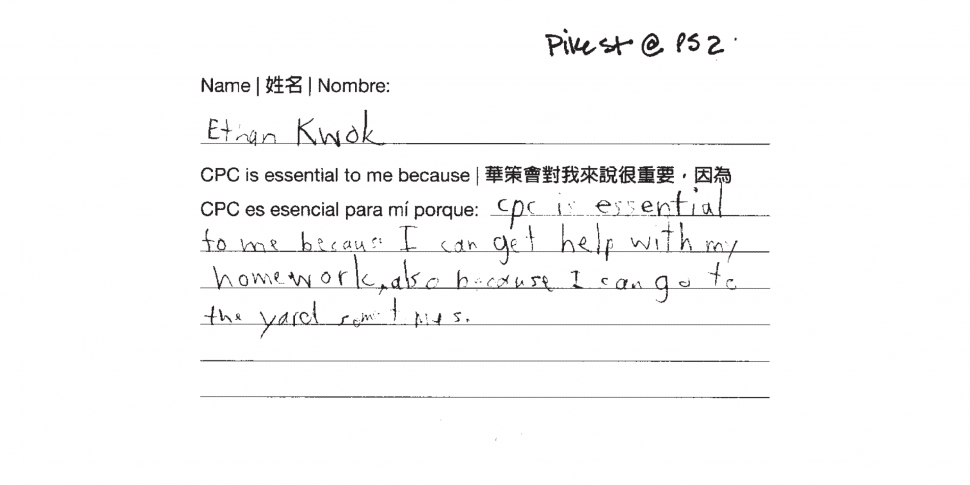 Pike st @ PS2
Name | 姓名 | Nombre:
Ethan Kwok
CPC is essential to me because | 華策會對我來說很重要，因為
CPC es esencial para mí porque: cpc is essential
to me because I can get help with my
homework, also because I can go to
the yard sometimes.